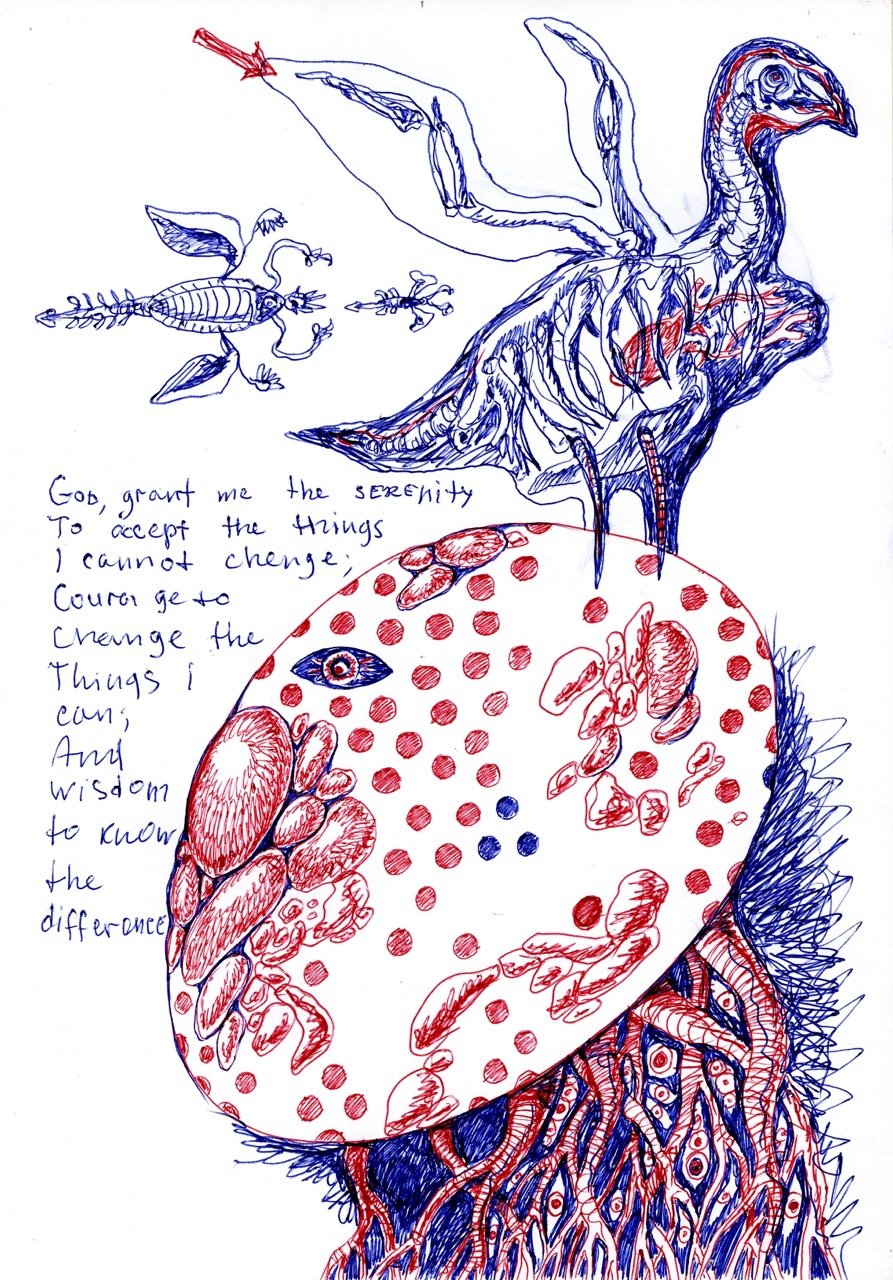 GOD, grant me the SERENITY
To accept the things
I cannot chenge;
Courage to
Change the
Things I
can;
And
wisdom
to know
the
difference